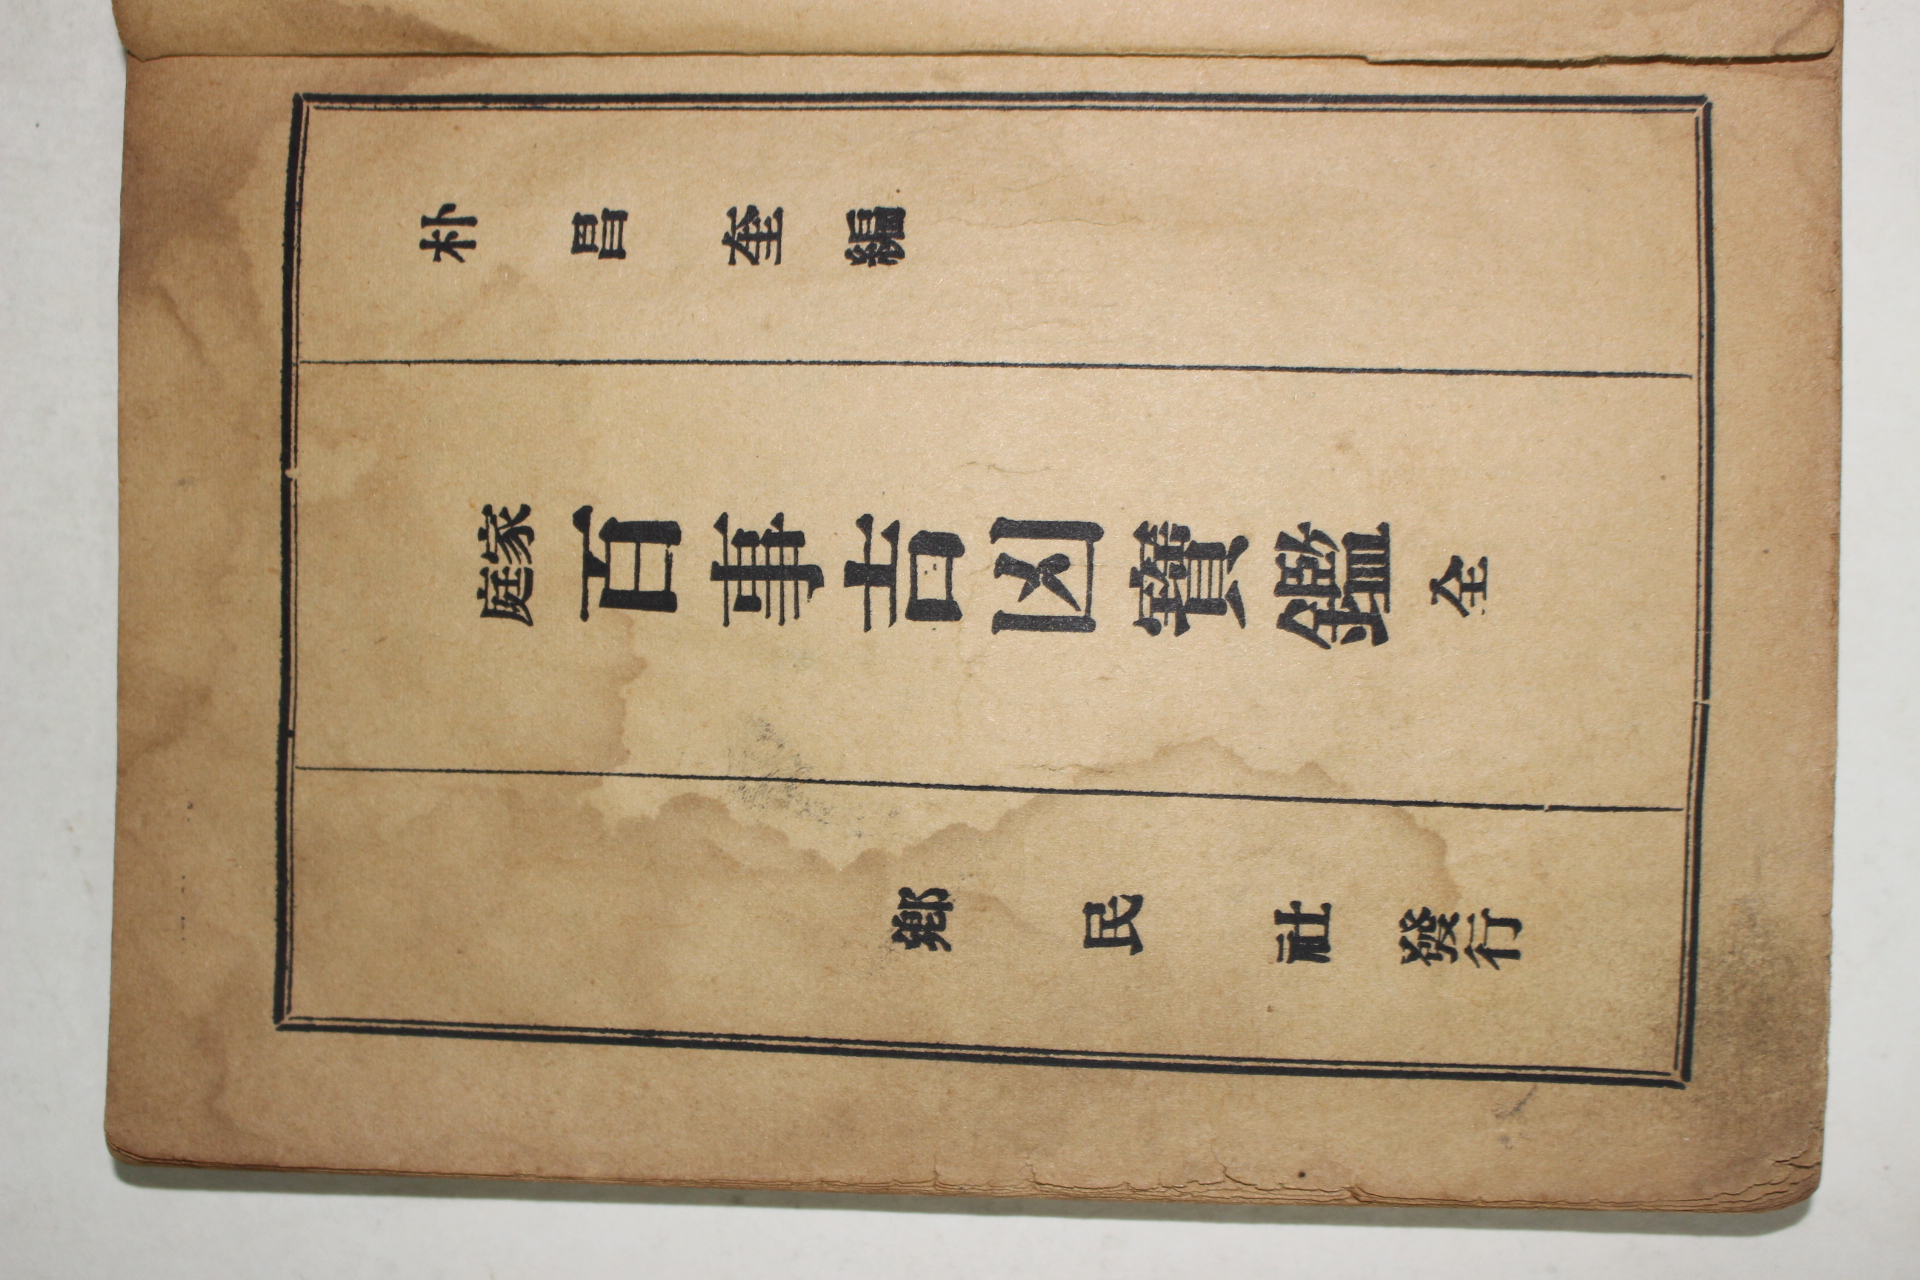 朴昌奎編
家庭百事吉凶寶鑑 全
鄉民社發行